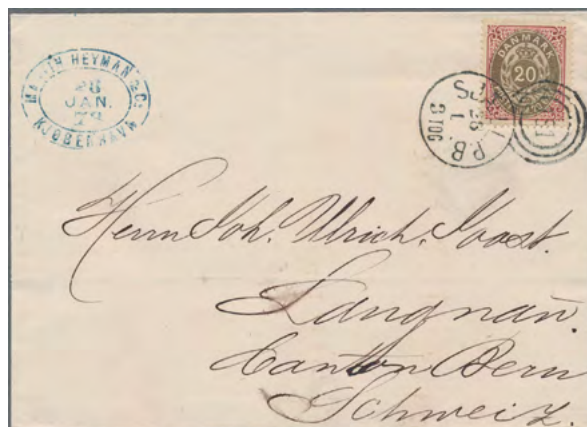 MARTIN HEYMAN & Co.
28
JAN.
78
KJØBENHAVN
DANMARK
20
SJ
P.B.
28
1
3 TOG
Herrn Joh. Ulrich. Joost.
Langnau.
Canton Bern
Schweiz.